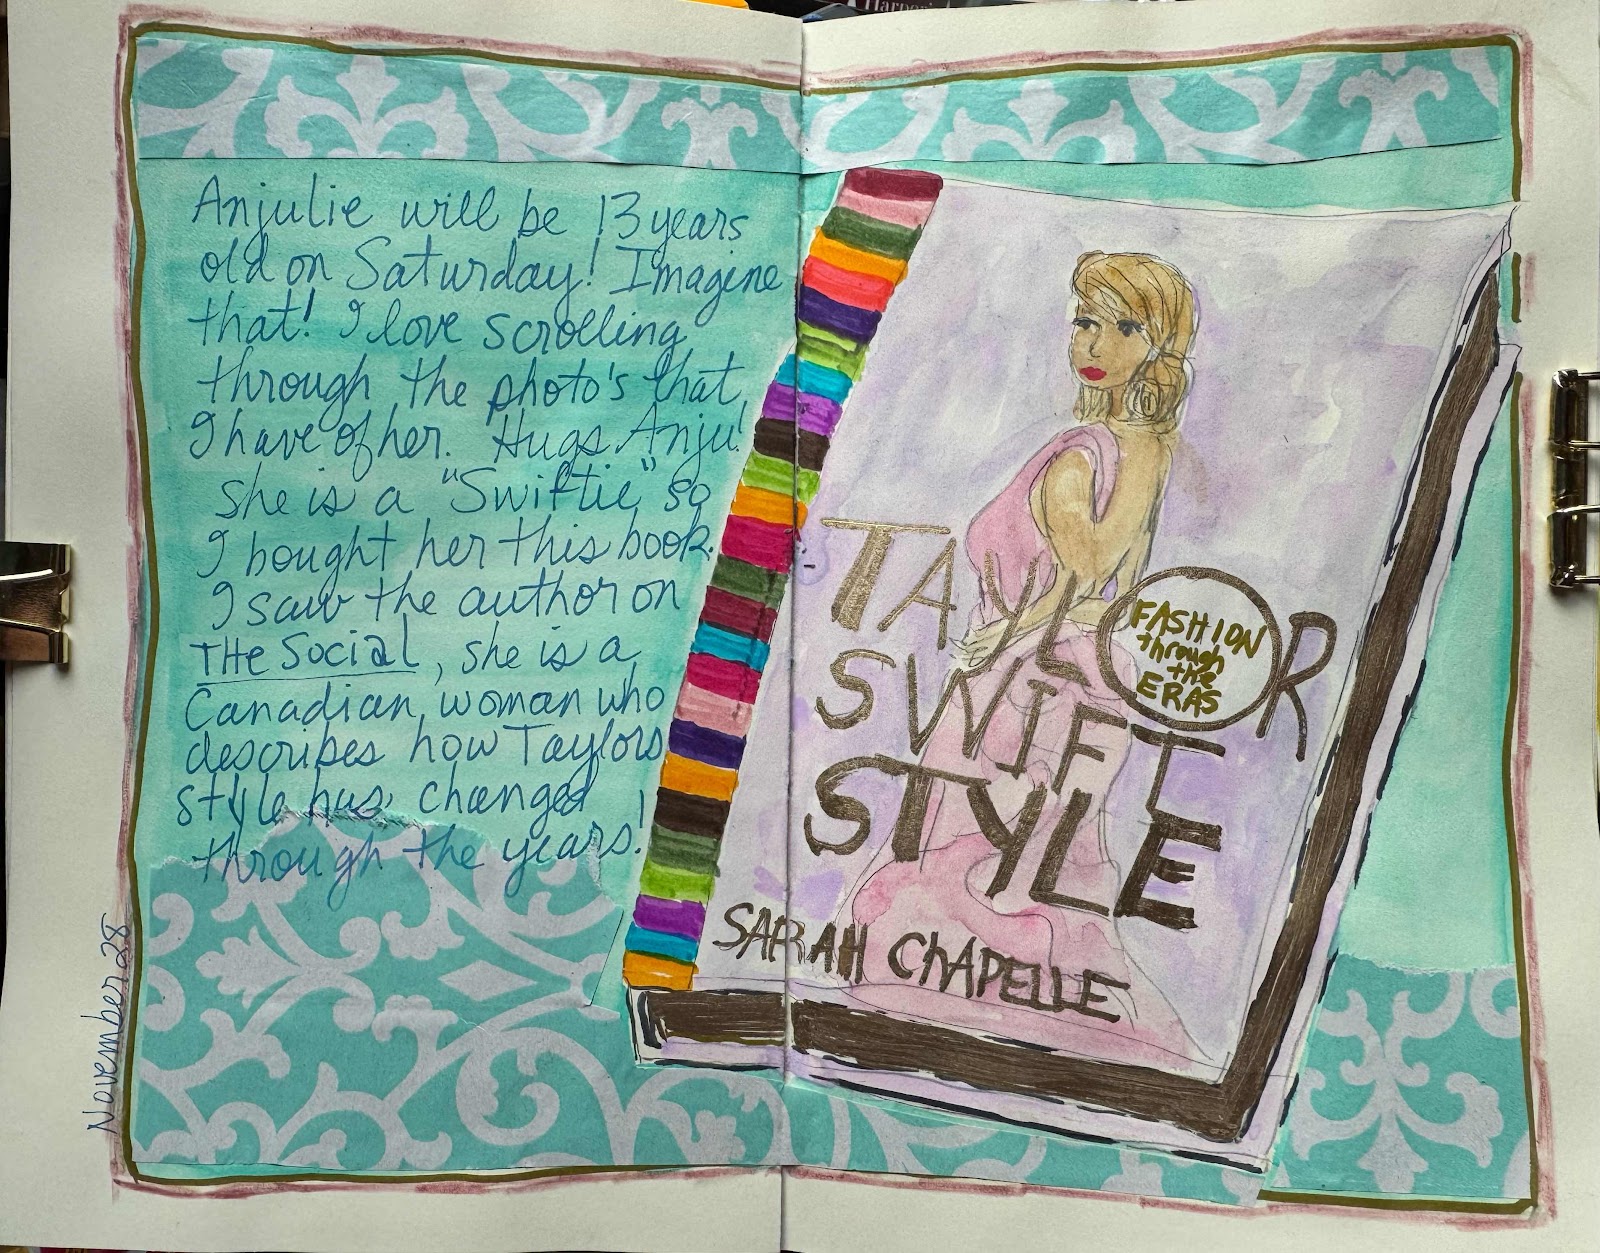 Harper
Anjulie will be 13 years
old on Saturday! Imagine
that! I love scrolling
through the photo's that
I have of her. Hugs Anju!
she is a "Swiftie" so
I bought her this book.
I saw the author on
THE Social, she is a
Canadian woman who
describes how Taylors
style has changed
through the years!
November 28
TAYLOR
FASHION
through
the
ERAS
SWIFT
STYLE
SARAH CHAPELLE